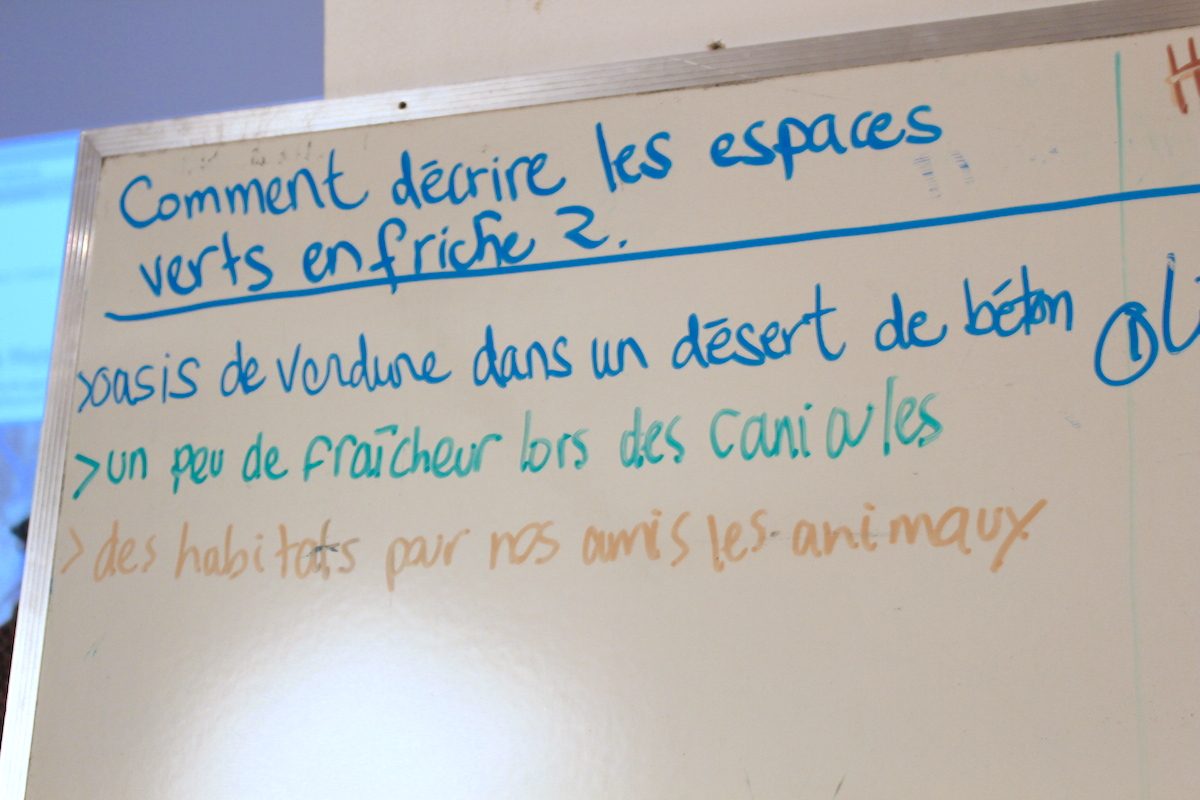 Comment décrire les espaces
verts en friche ?
>oasis de verdure dans un désert de béton
>un peu de fraîcheur lors des canicules
>des habitats pour nos amis les animaux
①